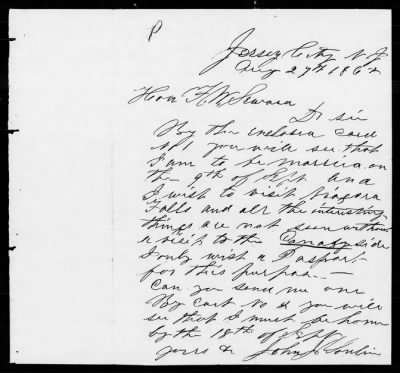 P
Jersey City N J
Aug 27th 1862
Hon F. W. Seward
Dr sir
By the inclosed card
No 1 you will see that
I am to be married on
the 9th of Sept and
I wish to visit Niagara
Falls and all the interesting
things are not seen without
a visit to the Canady side
I only wish a Pasport
for this purpose —
Can you send me one
By card No 2 you will
see that I must be home
by the 18th of Sept
yours &c John